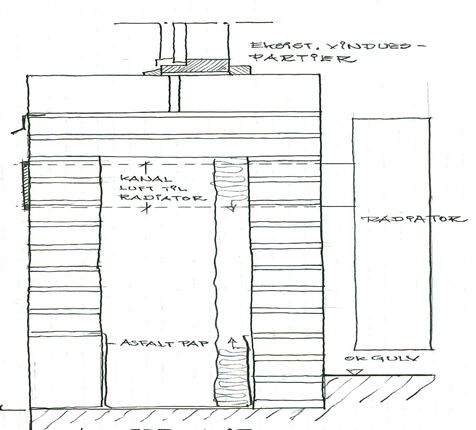 EKSIST. VINDUES-
PARTIER
KANAL
LUFT TIL
RADIATOR
RADIATOR
ASFALT PAP
OK GULV